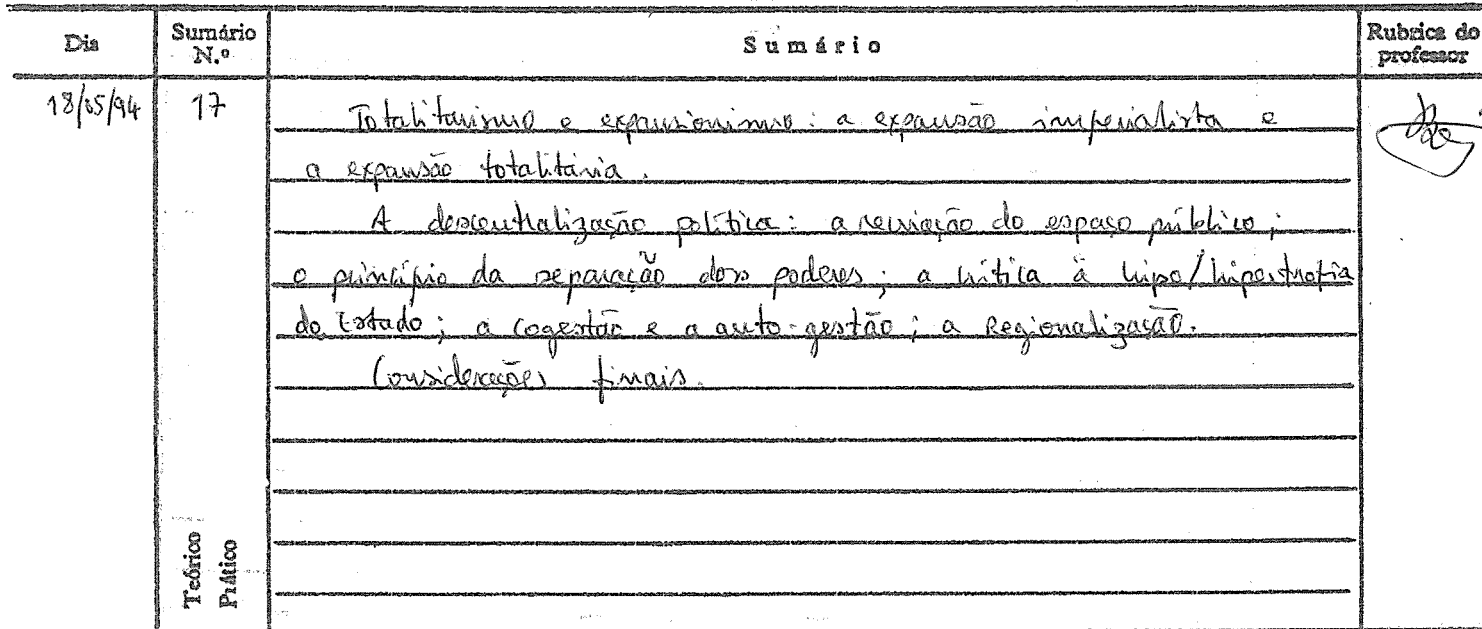 Dia Sumário N.º Sumário Rubrica do professor
18/05/94 17 Totalitarismo e expansionismo: a expansão imperialista e
a expansão totalitária.
A descentralização política: a do espaço público;
o princípio da separação dos poderes; a crítica à hipo/hipertrofia
do Estado; a cogestão e a auto-gestão; a Regionalização.
Considerações finais.
Teórico
Prático